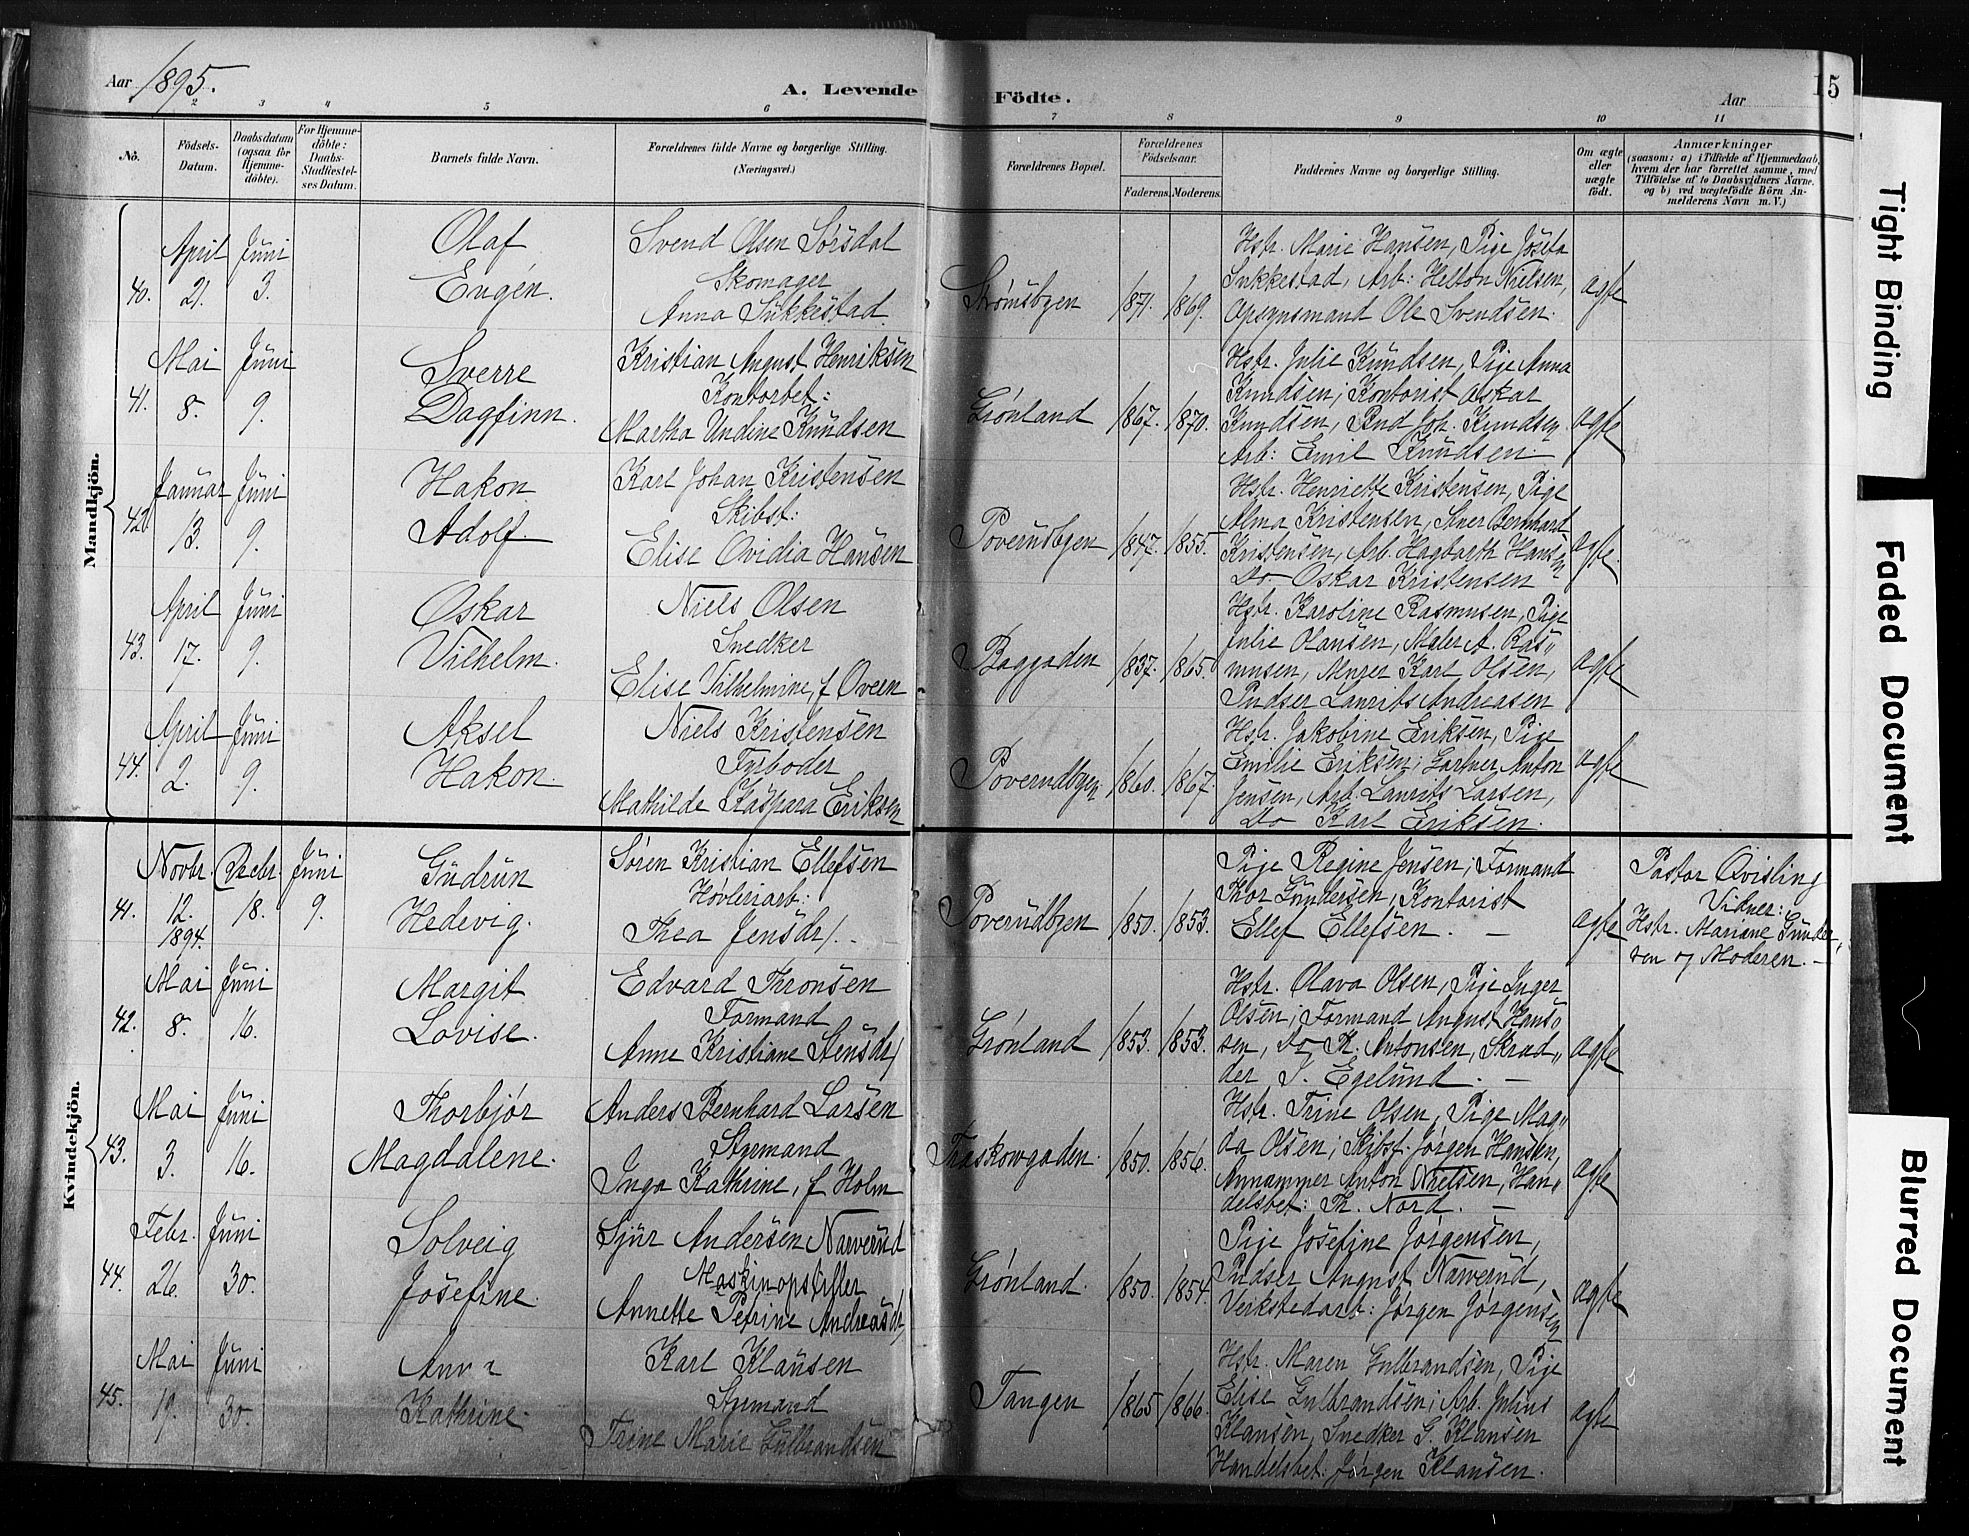 Aar 1895.
A. Levende Födte.
Aar
15
2 3 4 5 6 7 8 9 10 11
No.
Födsels-Datum.
Daabsdatum (ogsaa for Hjemme-döbte).
For Hjemme-döbte: Daabs-Stadfæstel-ses Datum.
Barnets fulde Navn.
Forældrenes fulde Navne og borgerlige Stilling. (Næringsvei.)
Forældrenes Bopæl.
Forældrenes Födselsaar.
Faderens. Moderens.
Faddernes Navne og borgerlige Stilling.
Om ægte eller uægte födt.
Anmærkninger
(saasom: a) i Tilfælde af Hjemmedaab,
hvem der har forrettet samme, med
Tilföielse af to Daabsvidners Navne,
og b) ved uægtefödte Börn An-
melderens Navn m. V.)
Mandkjön.
40. April 21. Juni 3.
Olaf
Eugén.
Svend Olsen Sørsdal
Skomager
Anna Sukkestad
Strømsbyen 1871. 1869.
Hstr. Marie Hansen, Pige Josefa
Sukkestad, Arb: Nielsen,
Opsynsmand Ole Svendsen.
ægte
41. Mai 8. Juni 9.
Sverre
Dagfinn.
Kristian August Henriksen
Kontorbet:
Martha Undine Knudsen
Grønland 1867. 1870.
Hstr. Julie Knudsen, Pige Anna
Knudsen; Kontorist Oskar
Knudsen, Bud Joh. Knudsen
Arb: Emil Knudsen.
ægte
42. Januar 13. Juni 9.
Hakon
Adolf.
Karl Johan Kristensen
Skibst:
Elise Ovidia Hansen
Poverudbyen 1847. 1855.
Hstr. Henriette Kristensen, Pige
Alma Kristensen, Bernhart
Kristensen, Arb. Hagbarth Hansen
Do Oskar Kristensen
ægte
43. April 17. Juni 9.
Oskar
Vilhelm.
Niels Olsen
Snedker
Elise Vilhelmine, f Oveen
Baggaden 1837. 1865.
Hstr. Karoline Rasmusen, Pige
Julie Olausen, Maler A. Ras„
musen, Murer Karl Olsen,
Pudser Laurits Andreasen
ægte
44. April 2. Juni 9.
Aksel
Hakon.
Niels Kristensen
Fyrbøder
Mathilde Kaspara Eriksen
Poverudbyen 1860. 1867.
Hstr. Jakobine Eriksen, Pige
Emilie Eriksen; Gartner Anton
Jensen, Arb. Laurits Larsen,
Do Karl Eriksen.
ægte
Kvindekjön.
41. Novbr. 12. 1894. Decbr. 18. Juni 9.
Gudrun
Hedevig.
Søren Kristian Ellefsen
Høvleriarb:
Thea Jensdr.
Poverudbyen 1850. 1853.
Pige Regine Jensen; Formand
Thor Gundersen, Kontorist
Ellef Ellefsen. —
ægte
Pastor Qvisling
Vidner:
Hstr. Mariane Gunder„
sen og Moderen. —
42. Mai 8. Juni 16.
Margit
Lovise.
Edvard Thronsen
Formand
Anne Kristiane
Grønland 1853. 1853.
Hstr. Olava Olsen, Pige Inger
Olsen; Formand August Hans„
sen, Do K. Antonsen, Skræd„
der J. Egelund. —
ægte
43. Mai 3. Juni 16.
Thorbjør
Magdalene.
Anders Bernhard Larsen
Styrmand
Inga Kathrine, f Holm
Træskowgaden. 1850. 1856.
Hstr. Trine Olsen, Pige Mag„
da Olsen; Skibsf. Jørgen Hansen,
Annammer Anton Nielsen, Han„
delsbet: Th. Nord. —
ægte
44. Febr. 26. Juni 30.
Solveig
Josefine.
Sjur Andersen Narverud
Maskinopsitter
Annette Petrine Andreasdr
Grønland. 1850. 1854.
Pige Josefine Jørgensen,
Pudser August Narverud,
Verkstedarb: Jørgen Jørgensen
ægte
45. Mai 19. Juni 30.
Anna
Kathrine.
Karl Klausen
Styrmand
Trine Marie Gulbrandsen
Tangen 1865 1866.
Hstr. Maren Gulbrandsen, Pige
Elise Gulbrandsen; Arb. Julius
Klausen, Snedker G. Klausen
Handelsbet: Jørgen Klausen.
ægte
Tight Binding
Faded Document
Blurred Document